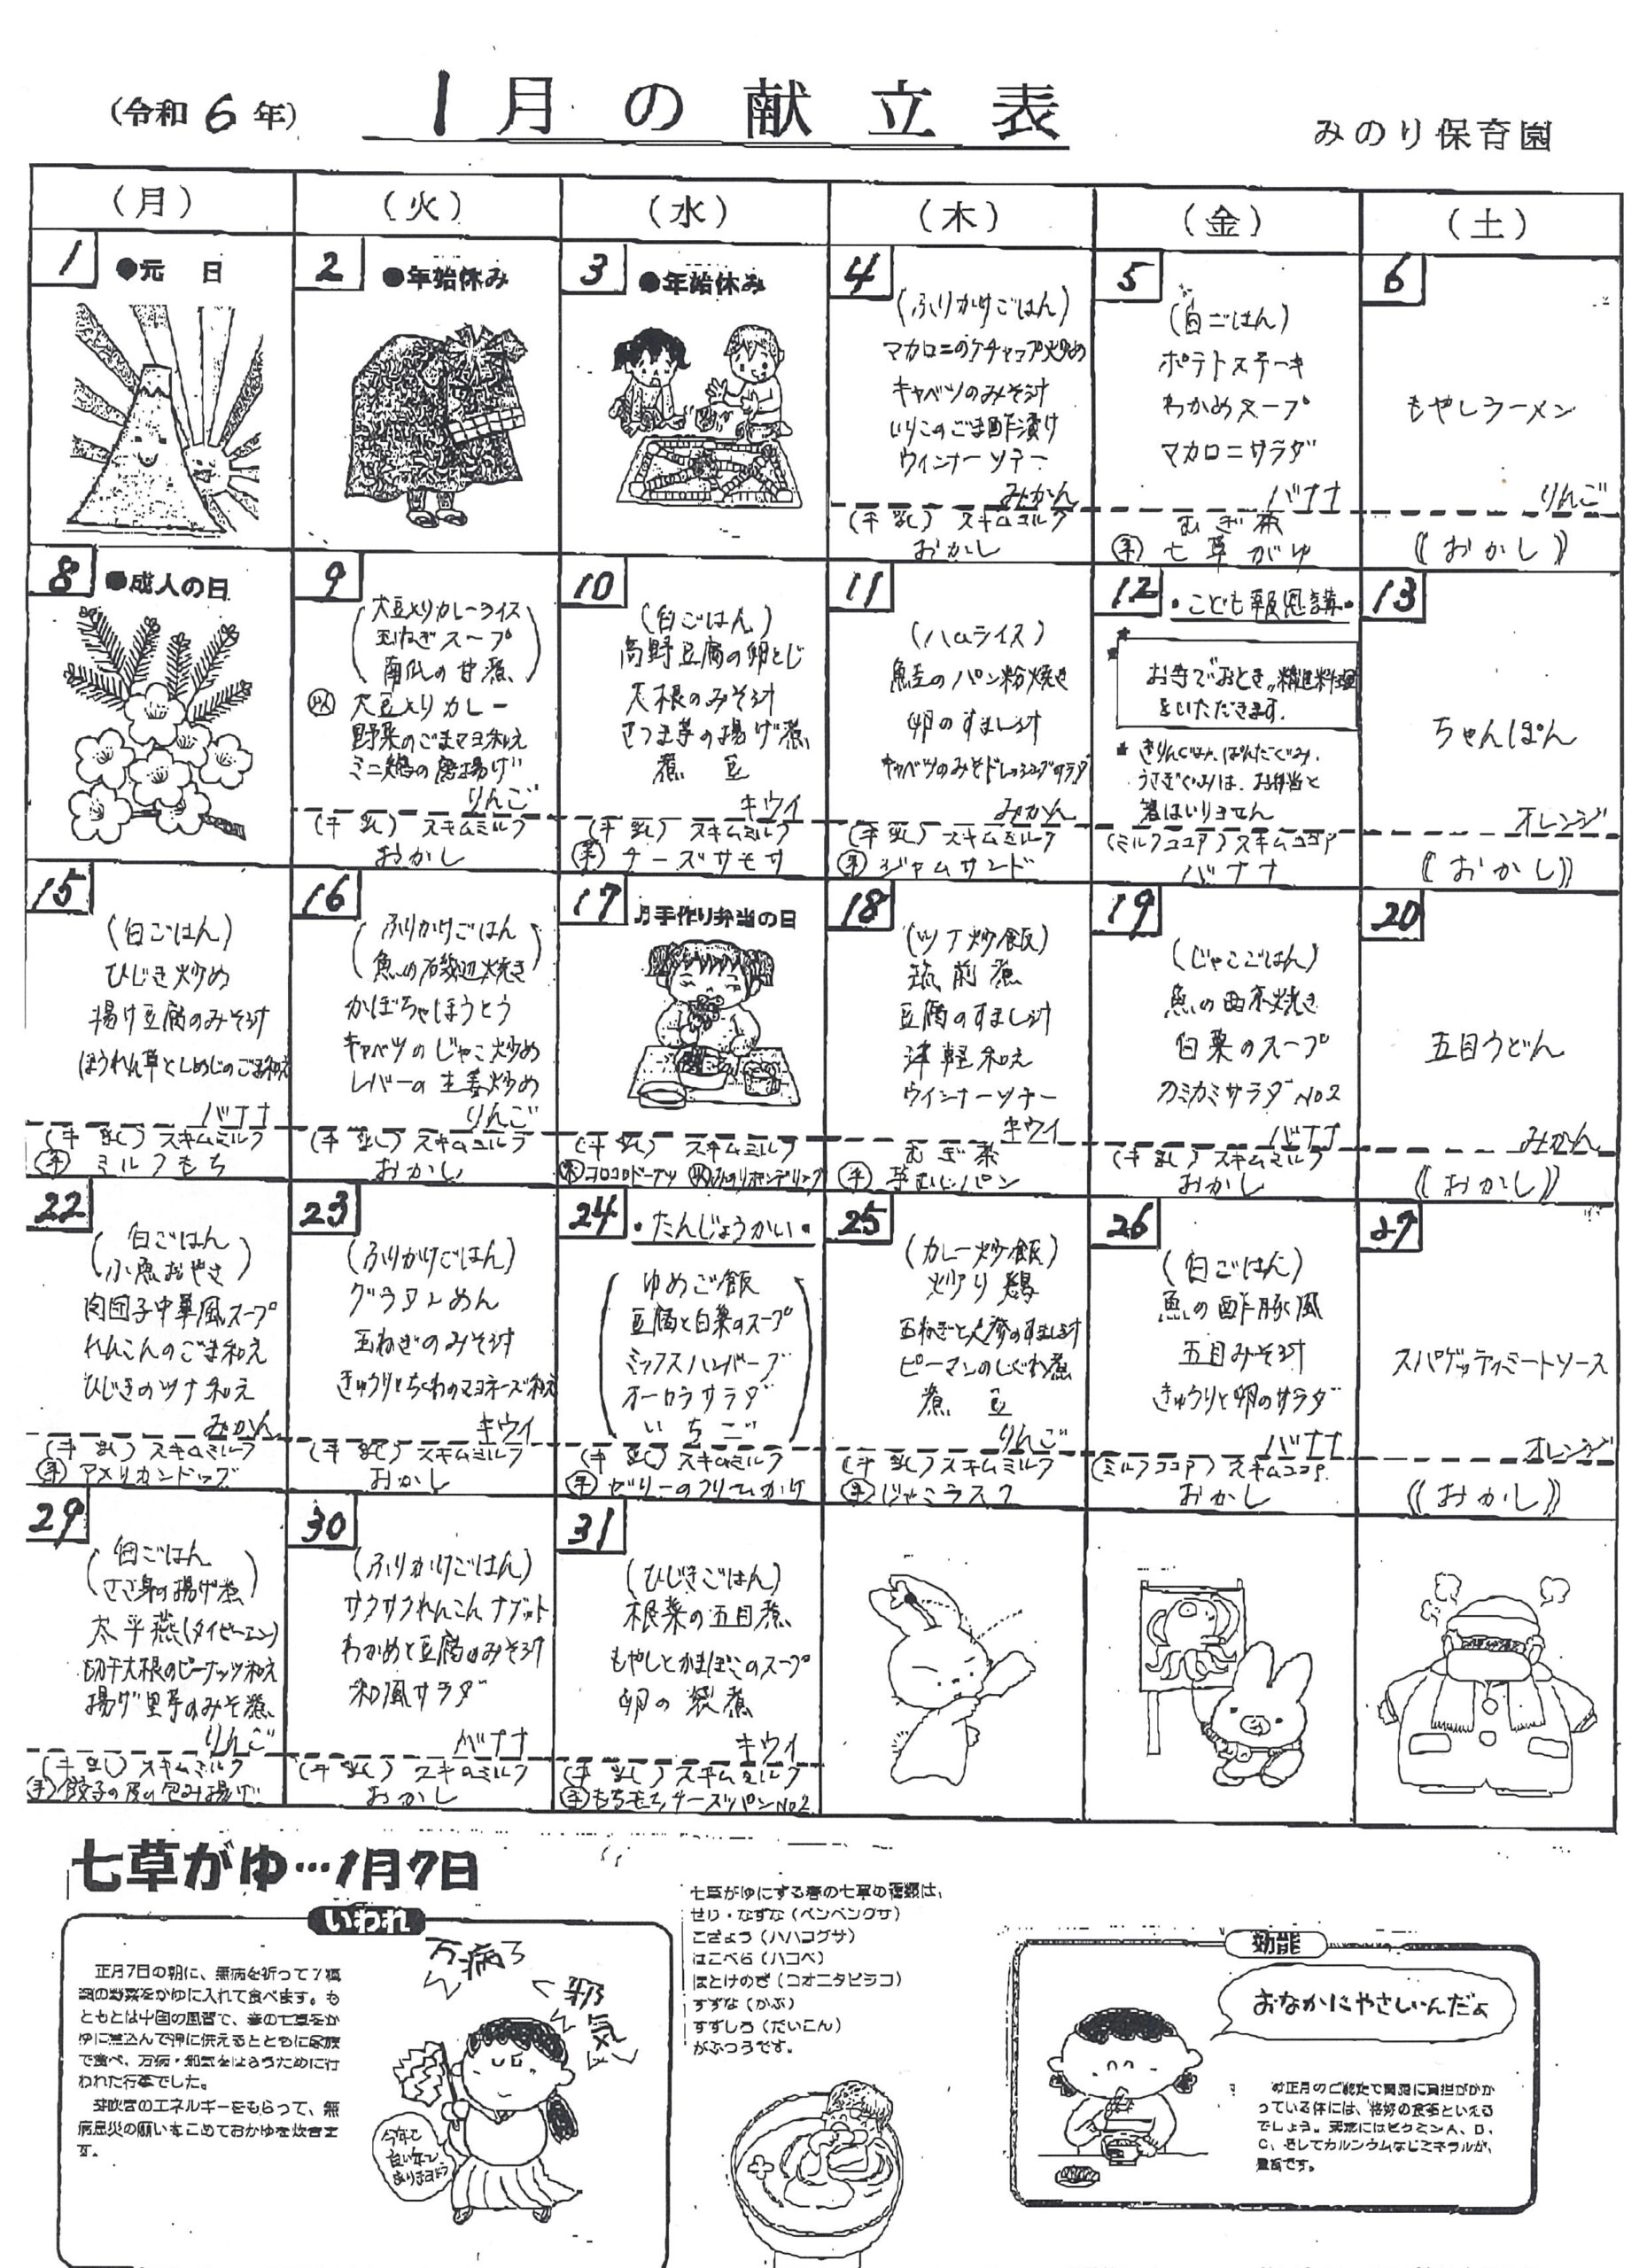 (令和6年)
1月の献立表
みのり保育園
(月)
(火)
(水)
(木)
(金)
(土)
1
●元 日
2
●年始休み
3
●年始休み
4
(ふりかけごはん)
マカロニのケチャップ炒め
キャベツのみそ汁
いりこのごま酢漬け
ウインナーソテー
みかん
(牛乳) スキムミルク
おかし
5
(白ごはん)
ポテトステーキ
わかめスープ
マカロニサラダ
バナナ
むぎ茶
㋢ 七草がゆ
6
もやしラーメン
りんご
(おかし)
8
●成人の日
9
大豆入りカレーライス
玉ねぎスープ
南瓜の甘煮
大豆入りカレー
野菜のごまマヨ和え
ミニ鶏の唐揚げ
りんご
(牛乳) スキムミルク
おかし
10
(白ごはん)
高野豆腐の卵とじ
大根のみそ汁
さつま芋の揚げ煮
煮豆
キウイ
(牛乳) スキムミルク
手 チーズサモサ
11
(ハムライス)
鮭のパン粉焼き
卵のすまし汁
キャベツのみそドレッシングサラダ
みかん
(牛乳) スキムミルク
手 ジャムサンド
12
・こども報恩講・
お寺でおとき〟精進料理
をいただきます。
* きりんぐみ、ぱんだぐみ、
うさぎぐみは、お弁当と
箸はいりません
(ミルクココア) スキムココア
バナナ
13
ちゃんぽん
オレンジ
(おかし)
15
(白ごはん)
ひじき炒め
揚げ豆腐のみそ汁
ほうれん草としめじのごま和え
バナナ
(牛乳) スキムミルク
手 ミルクもち
16
ふりかけごはん
魚の磯辺焼き
かぼちゃほうとう
キャベツのじゃこ炒め
レバーの生姜炒め
りんご
(牛乳) スキムミルク
おかし
17
手作り弁当の日
(牛乳) スキムミルク
コロコロドーナツ
18
(ツナ炒飯)
筑前煮
豆腐のすまし汁
津軽和え
ウインナーソテー
キウイ
むぎ茶
手 芋むしパン
19
(じゃこごはん)
魚の西京焼き
白菜のスープ
カミカミサラダNO2
バナナ
(牛乳) スキムミルク
おかし
20
五目うどん
みかん
(おかし)
22
白ごはん
小魚おやき
肉団子中華風スープ
れんこんのごま和え
ひじきのツナ和え
みかん
(牛乳) スキムミルク
手 アメリカンドッグ
23
(ふりかけごはん)
グラタンめん
玉ねぎのみそ汁
きゅうりとちくわのマヨネーズ和え
キウイ
(牛乳) スキムミルク
おかし
24
・たんじょうかい・
ゆめご飯
豆腐と白菜のスープ
ミックスハンバーグ
オーロラサラダ
いちご
(牛乳) スキムミルク
手 ゼリーのクリームかけ
25
(カレー炒飯)
炒り鶏
玉ねぎと人参のすまし汁
ピーマンのしぐれ煮
煮豆
りんご
(牛乳) スキムミルク
手 じゃこラスク
26
(白ごはん)
魚の酢豚風
五目みそ汁
きゅうりと卵のサラダ
バナナ
(ミルクココア) スキムココア
おかし
27
スパゲッティミートソース
オレンジ
(おかし)
29
白ごはん
ささ身の揚げ煮
太平燕(タイピーエン)
切干大根のピーナッツ和え
揚げ里芋のみそ煮
りんご
(牛乳) スキムミルク
手 餃子の皮の包み揚げ
30
(ふりかけごはん)
サクサクれんこんナゲット
わかめと豆腐のみそ汁
和風サラダ
バナナ
(牛乳) スキムミルク
おかし
31
(ひじきごはん)
根菜の五目煮
もやしとかまぼこのスープ
卵の袋煮
キウイ
(牛乳) スキムミルク
手 もちもちチーズパンNO2
七草がゆ…1月7日
いわれ
正月7日の朝に、無病を祈って7種
類の野菜をかゆに入れて食べます。も
ともとは中国の風習で、春の七草をか
ゆに煮込んで神に供えるとともに家族
で食べ、万病・邪気をはらうために行
われた行事でした。
芽吹きのエネルギーをもらって、無
病息災の願いをこめておかゆを炊きま
す。
万病
邪気
今年も
良い年で
ありますように
七草がゆにする春の七草の種類は、
せり・なずな(ペンペングサ)
ごぎょう(ハハコグサ)
はこべら(ハコベ)
ほとけのざ(コオニタビラコ)
すずな(かぶ)
すずしろ(だいこん)
がふつうです。
効能
おなかにやさしいんだよ
お正月のご馳走で胃腸に負担がかか
っている体には、格好の食事といえる
でしょう。菜にはビタミンA、B、
C、そしてカルシウムなどミネラルが、
豊富です。